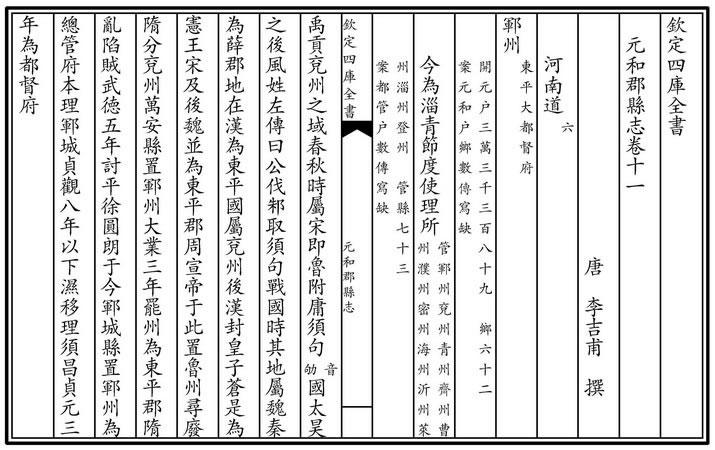 欽定四庫全書
元和郡縣志卷十一
唐 李吉甫 撰
河南道 六
鄆州 東平大都督府
開元户三萬三千三百八十九 鄉六十二
案元和户鄉數傳寫缺
今為淄青節度使理所 管鄆州兖州青州齊州曹
州濮州密州海州沂州萊
州淄州登州 管縣七十三
案都管户數傳寫缺
欽定四庫全書 元和郡縣志
禹貢兖州之域春秋時屬宋即魯附庸須句 音劬 國太昊
之後風姓左傳曰公伐邾取須句戰國時其地屬魏秦
為薛郡地在漢為東平國屬兖州後漢封皇子蒼是為
憲王宋及後魏並為東平郡周宣帝于此置魯州尋廢
隋分兖州萬安縣置鄆州大業三年罷州為東平郡隋
亂陷賊武德五年討平徐圓朗于今鄆城縣置鄆州為
總管府本理鄆城貞觀八年以下濕移理須昌貞元三
年為都督府